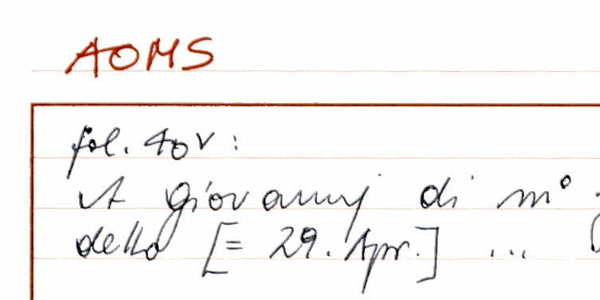 AOMS
fol. 40v:
A Giovannj di m°
detto [= 29. Apr.] ...